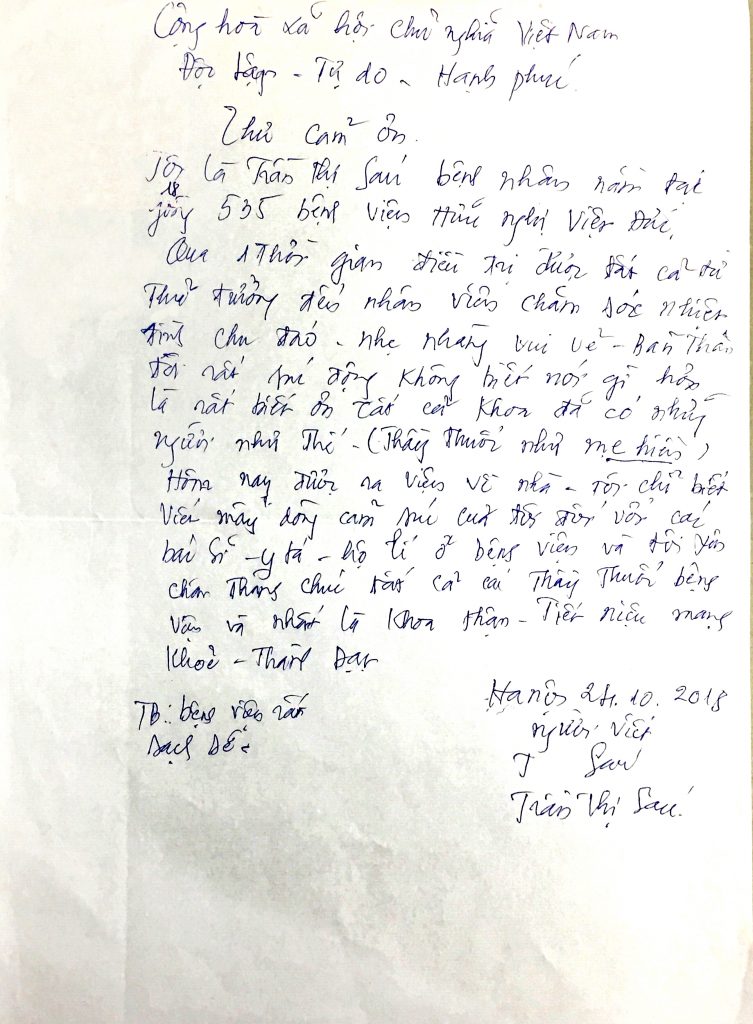 Cộng hoà xã hội chủ nghĩa Việt Nam
Độc lập - Tự do - Hạnh phúc
Thư cảm ơn.
Tôi là Trần Thị Sáu bệnh nhân nằm tại
giường 18 535 bệnh viện Hữu nghị Việt Đức,
Qua 1 thời gian điều trị được tất cả từ
Thủ trưởng đến nhân viên chăm sóc nhiệt
tình chu đáo - nhẹ nhàng vui vẻ - Bản thân
tôi rất xúc động không biết nói gì hơn
là rất biết ơn tất cả khoa đã có những
người như thế - (Thầy thuốc như mẹ hiền)
Hôm nay được ra viện về nhà - tôi chỉ biết
viết mấy dòng cảm xúc của tôi đối với các
bác sĩ - y tá - hộ lí ở bệnh viện và tôi xin
chân thành chúc tất cả các Thầy thuốc bệnh
viện và nhất là khoa thận - Tiết niệu mạnh
khoẻ - Thành đạt
TB: bệnh viện rất
sạch sẽ
Hà nội 24.10.2018
người viết
T Sáu
Trần Thị Sáu.